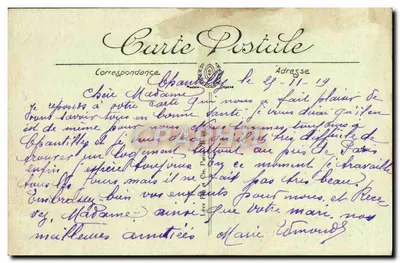 Carte Postale
Correspondance
Adresse
Chantilly le 29-11-19
Chère Madame
je réponds à votre carte qui nous a fait plaisir de
vous savoir tous en bonne santé je vous dirai qu'il en
est de même pour nous. Nous sommes toujours à
Chantilly et je vous difficile de
trouver un logement surtout au près de Paris
enfin j'espère toujours en ce moment je travaille
tous les jours mais il ne fait pas très beau.
Embrassez bien vos enfants pour nous, et Rece-
vez, Madame ainsi que votre mari nos
meilleures amitiés Marie Edmond